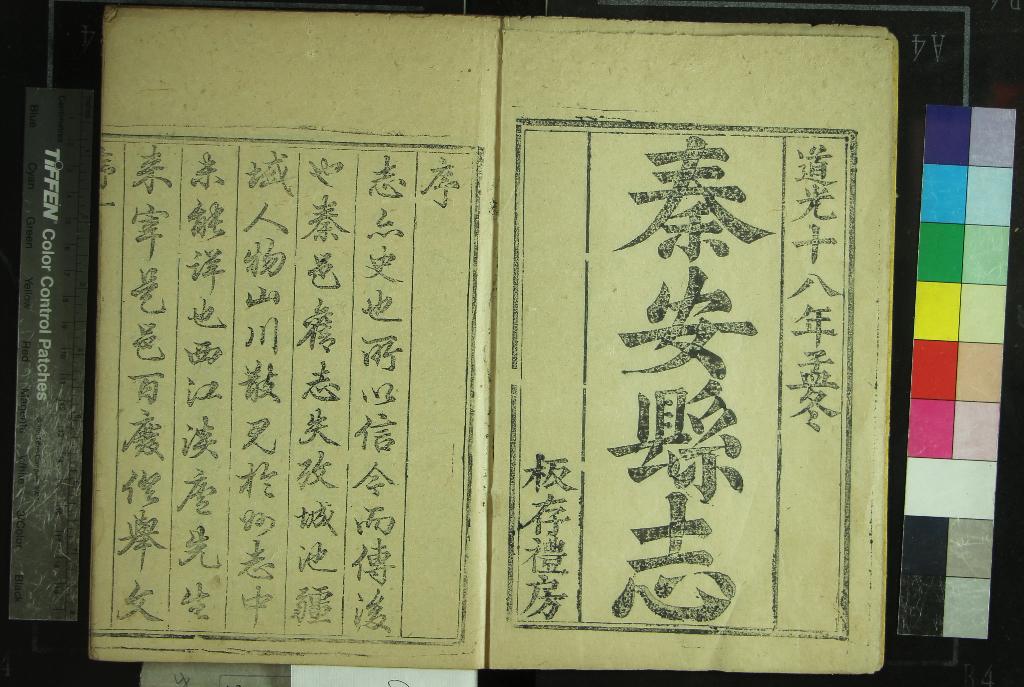 道光十八年孟冬
秦安縣志
板存禮房
序
志亦史也所以信今而傳後
也秦邑舊志失攷城池疆
域人物山川散見於州志中
未能詳也西江淡唐先生
来宰是邑百廢俱舉文
TIFFEN Color Control Patches
Blue Cyan Green Yellow Red Magenta White 3/Color Black
A4